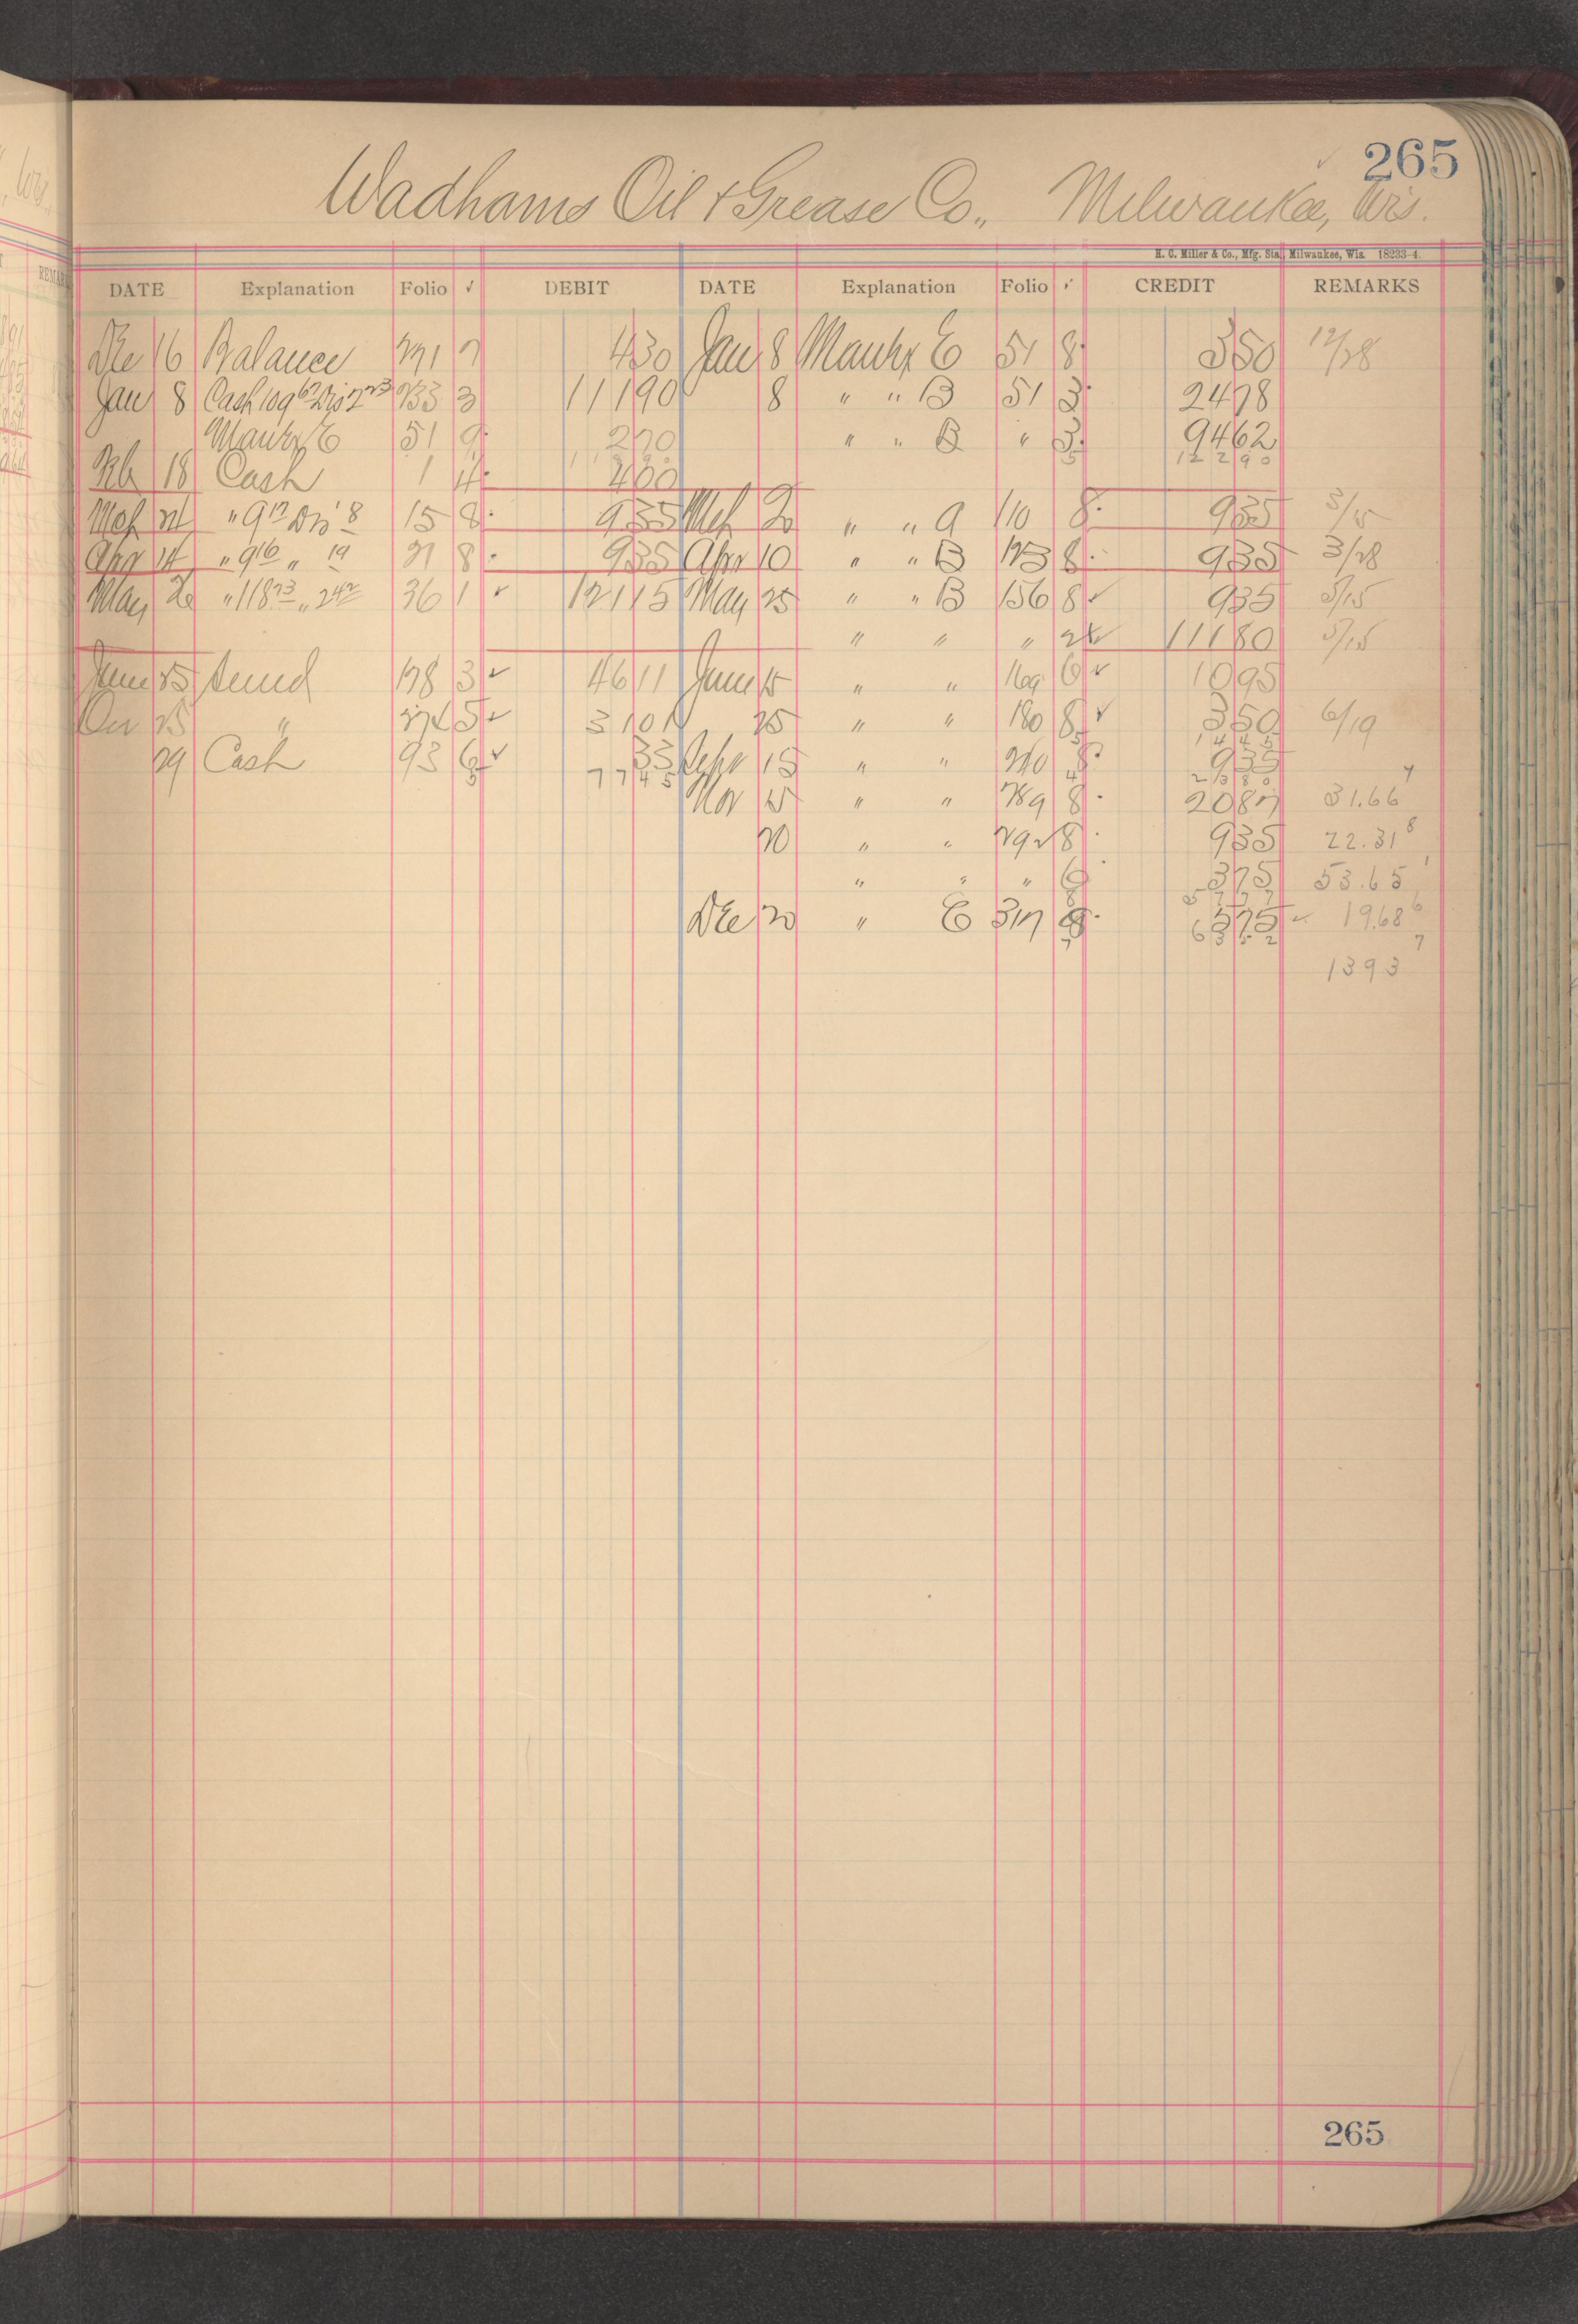 265
Wadhams Oil & Grease Co., Milwaukee, Wis.
H. C. Miller & Co., Mfg. Sta., Milwaukee, Wis. 18233-4.
DATE Explanation Folio ✓ DEBIT DATE Explanation Folio ✓ CREDIT REMARKS
Dec 16 Balance 7 430 Jan 8 E 51 8 350 12/28
Jan 8 Cash 109 67 Dis 2 23 233 3 11190 8 " " B 51 3 2478
E 51 9 270 " " B " 3 9462
12290
Feb 18 Cash 1 4 400
Mch 21 " 9 17 Dis 18 15 8 935 Mch 20 " " A 110 8 935 3/15
Apr 14 " 9 16 " 19 21 8 935 Apr 10 " " B 123 8 935 3/28
May 26 " 118 73 " 2 42 36 1 ✓ 12115 May 25 " " B 156 8 ✓ 935 5/15
" " " 11180 5/15
June 25 178 3 ✓ 4611 June 15 " " 169 6 ✓ 1095
25 " 5 ✓ 3101 25 " " 180 8 ✓ 350 6/19
1445
29 Cash 93 6 ✓ 33 Sept 15 " " 240 8 935
7745 2380
Nov 15 " " 289 8 2087 31.66 4
20 " " 292 8 935 22.31 8
" " " 6 375 53.65 1
5777
Dec 20 " E 317 8 575 ✓ 19.68 6
6352
1393 7
265